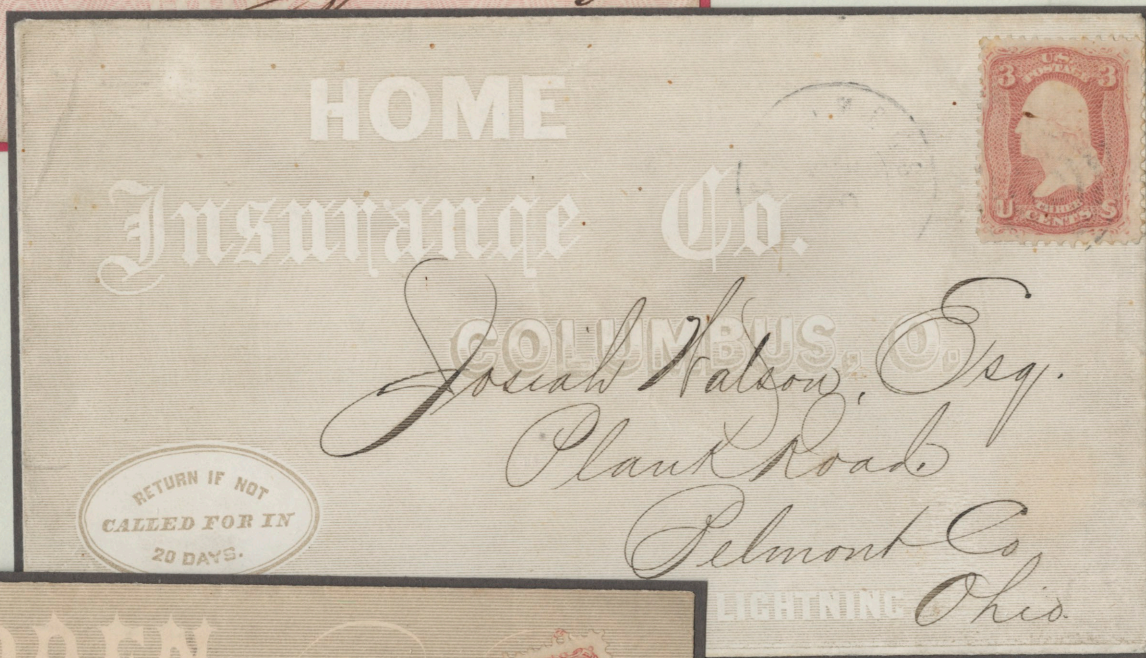 HOME
Insurance Co.
COLUMBUS, O.
U.S.
POSTAGE
3 3
U THREE S
CENTS
Josiah Watson, Esq.
Plank Road.
Belmont Co
Ohio.
RETURN IF NOT
CALLED FOR IN
20 DAYS.
LIGHTNING